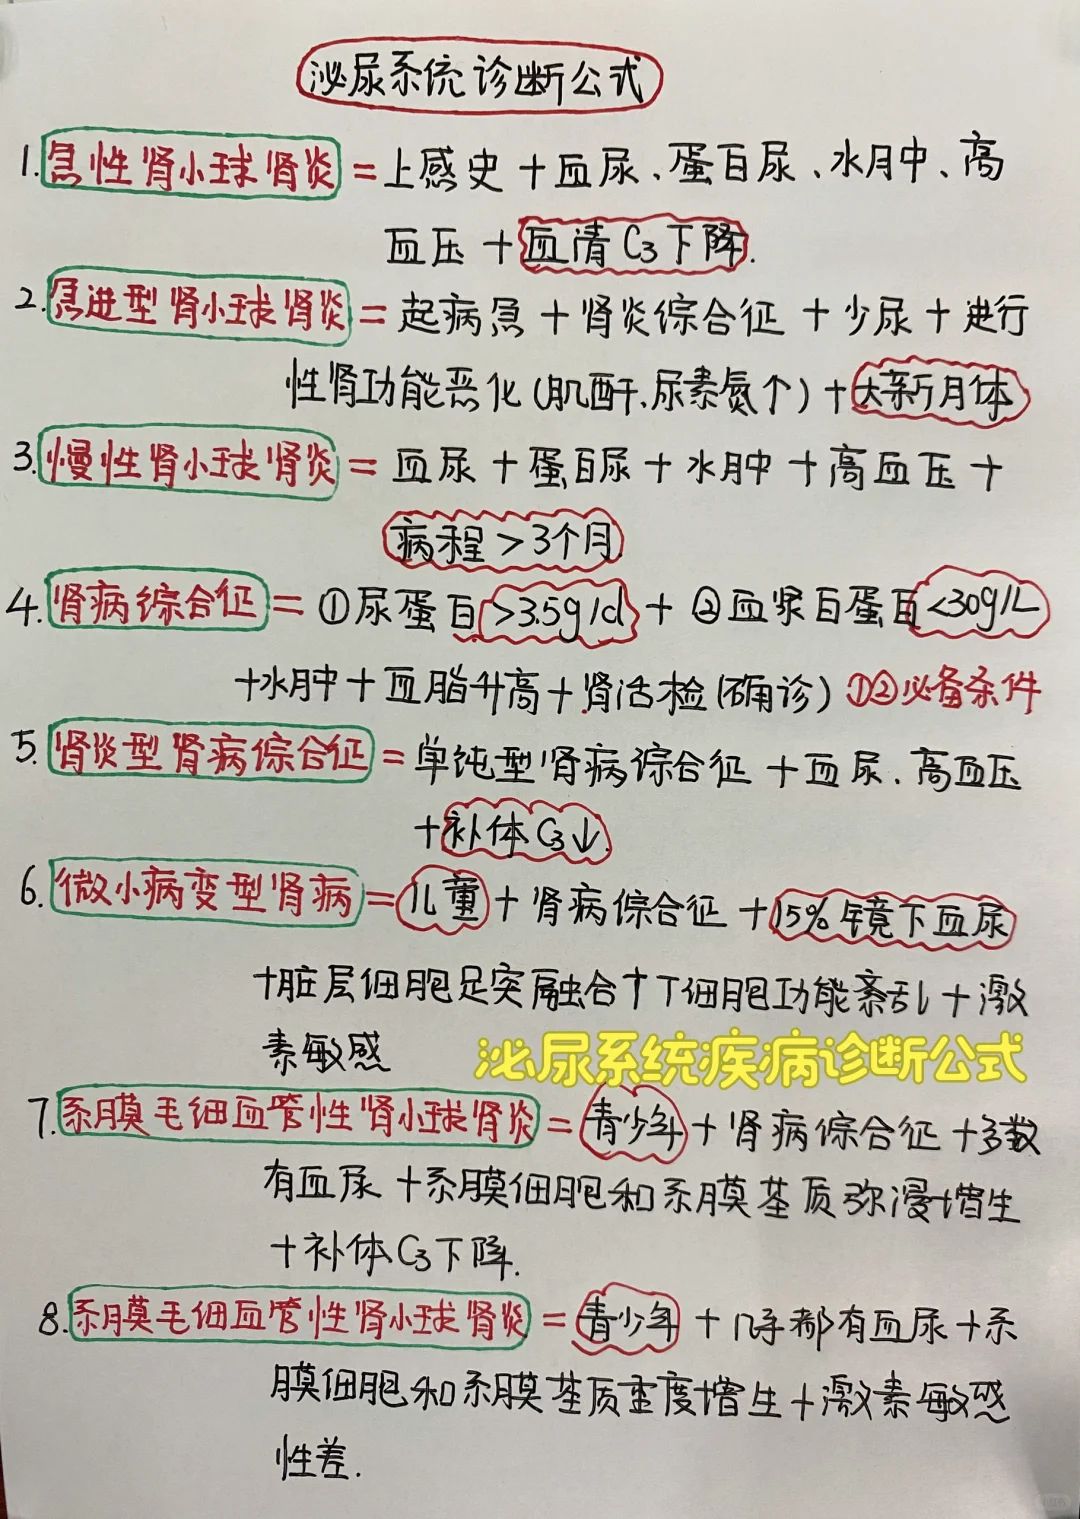 泌尿系统诊断公式
1.急性肾小球肾炎=上感史+血尿、蛋白尿、水肿、高
血压+血清C3下降.
2.急进型肾小球肾炎=起病急+肾炎综合征+少尿+进行
性肾功能恶化(肌酐.尿素氮↑)+大新月体
3.慢性肾小球肾炎=血尿+蛋白尿+水肿+高血压+
病程>3个月.
4.肾病综合征=①尿蛋白>3.5g/d+②血浆白蛋白<30g/L
+水肿+血脂升高+肾活检(确诊)①②必备条件
5.肾炎型肾病综合征=单纯型肾病综合征+血尿.高血压
+补体C3↓.
6.微小病变型肾病=儿童+肾病综合征+15%镜下血尿
+脏层细胞足突融合+T细胞功能紊乱+激
素敏感
泌尿系统疾病诊断公式
7.系膜毛细血管性肾小球肾炎=青少年+肾病综合征+多数
有血尿+系膜细胞和系膜基质弥漫增生
+补体C3下降.
8.系膜毛细血管性肾小球肾炎=青少年+几乎都有血尿+系
膜细胞和系膜基质重度增生+激素敏感
性差.